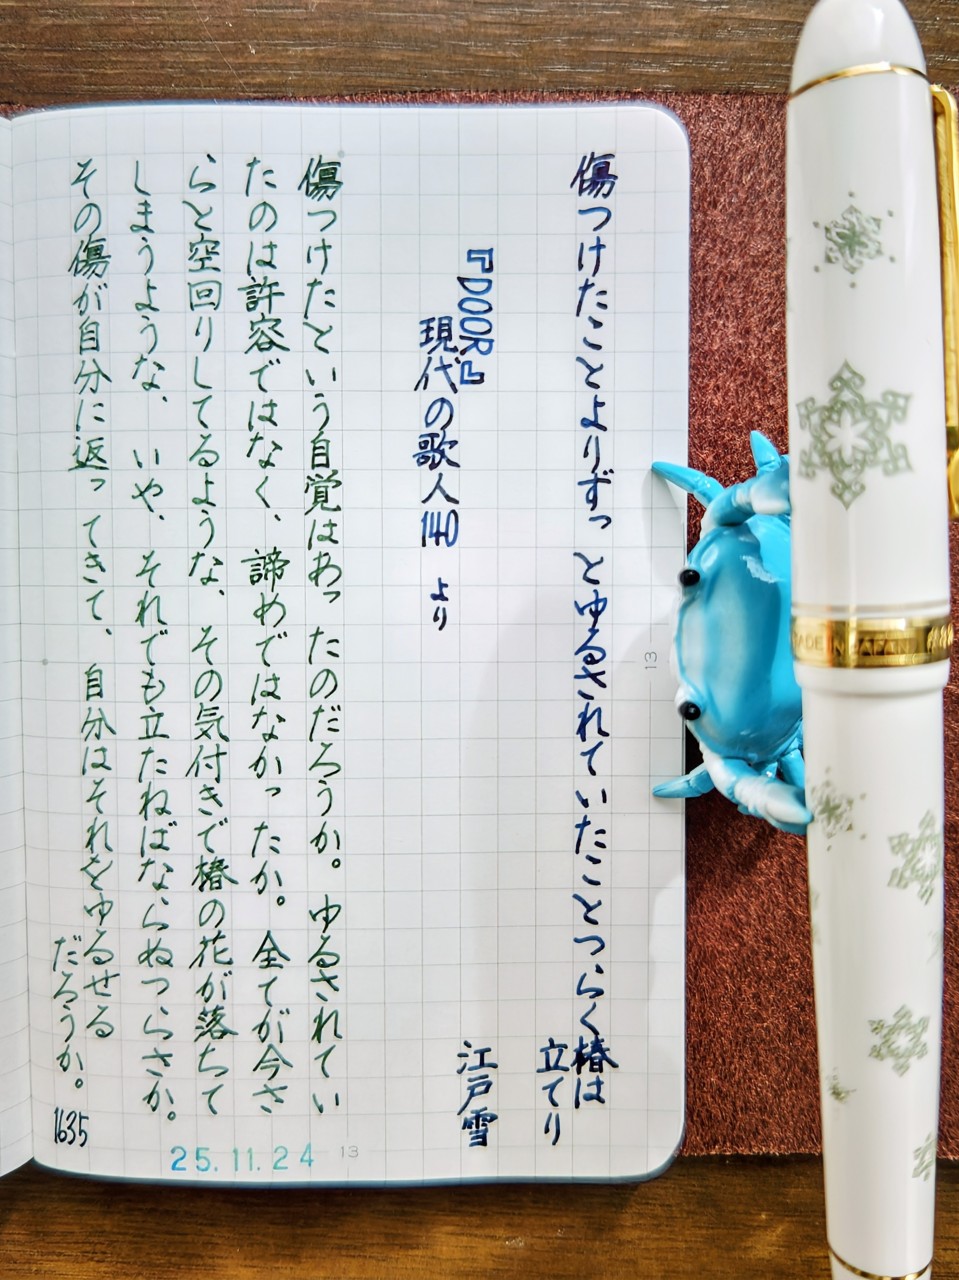 傷つけたことよりずっとゆるされていたことつらく椿は
立てり
江戸雪
『DOOR』
現代の歌人140 より
傷つけたという自覚はあったのだろうか。ゆるされてい
たのは許容ではなく、諦めではなかったか。全てが今さ
らと空回りしてるような、その気付きで椿の花が落ちて
しまうような、いや、それでも立たねばならぬつらさか。
その傷が自分に返ってきて、自分はそれをゆるせる
だろうか。
1635
25.11.24
13
13
MADE IN JAPAN